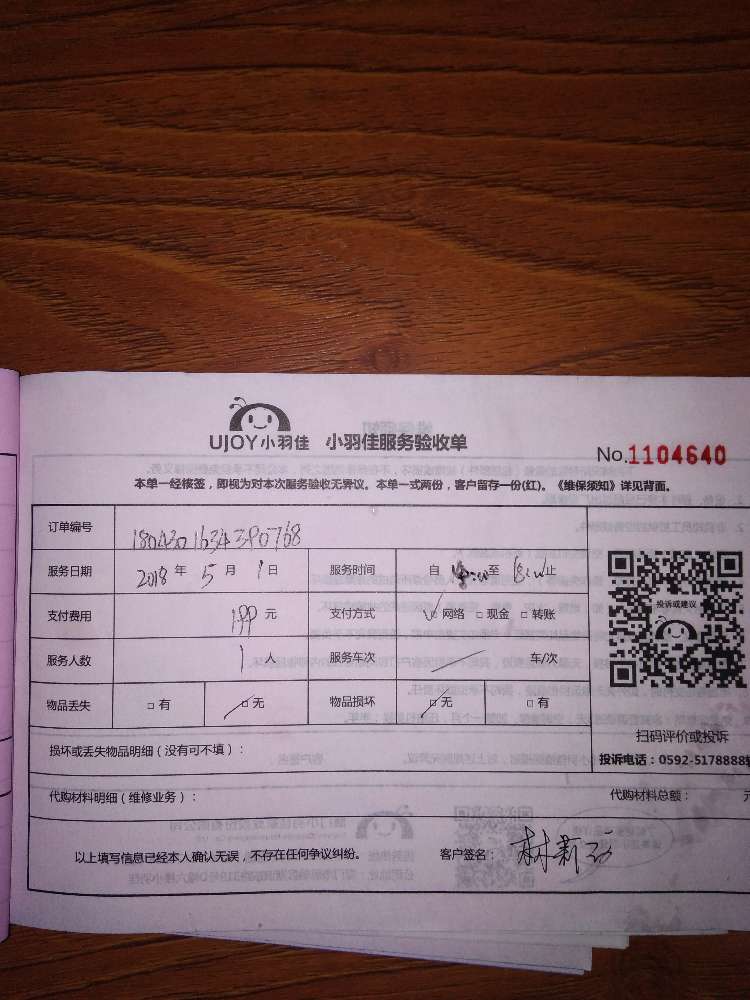 UJOY小羽佳 小羽佳服务验收单
No.1104640
本单一经核签，即视为对本次服务验收无异议。本单一式两份，客户留存一份(红)。《维保须知》详见背面。
订单编号
服务日期 2018 年 5 月 1 日 服务时间 自 至 止
支付费用 199 元 支付方式 网络 □ 现金 □ 转账
服务人数 1 人 服务车次 车/次
物品丢失 □ 有 □ 无 物品损坏 □ 无 □ 有
投诉或建议
扫码评价或投诉
投诉电话：0592-5178888
损坏或丢失物品明细（没有可不填）：
代购材料明细（维修业务）： 代购材料总额：
以上填写信息已经本人确认无误，不存在任何争议纠纷。 客户签名：